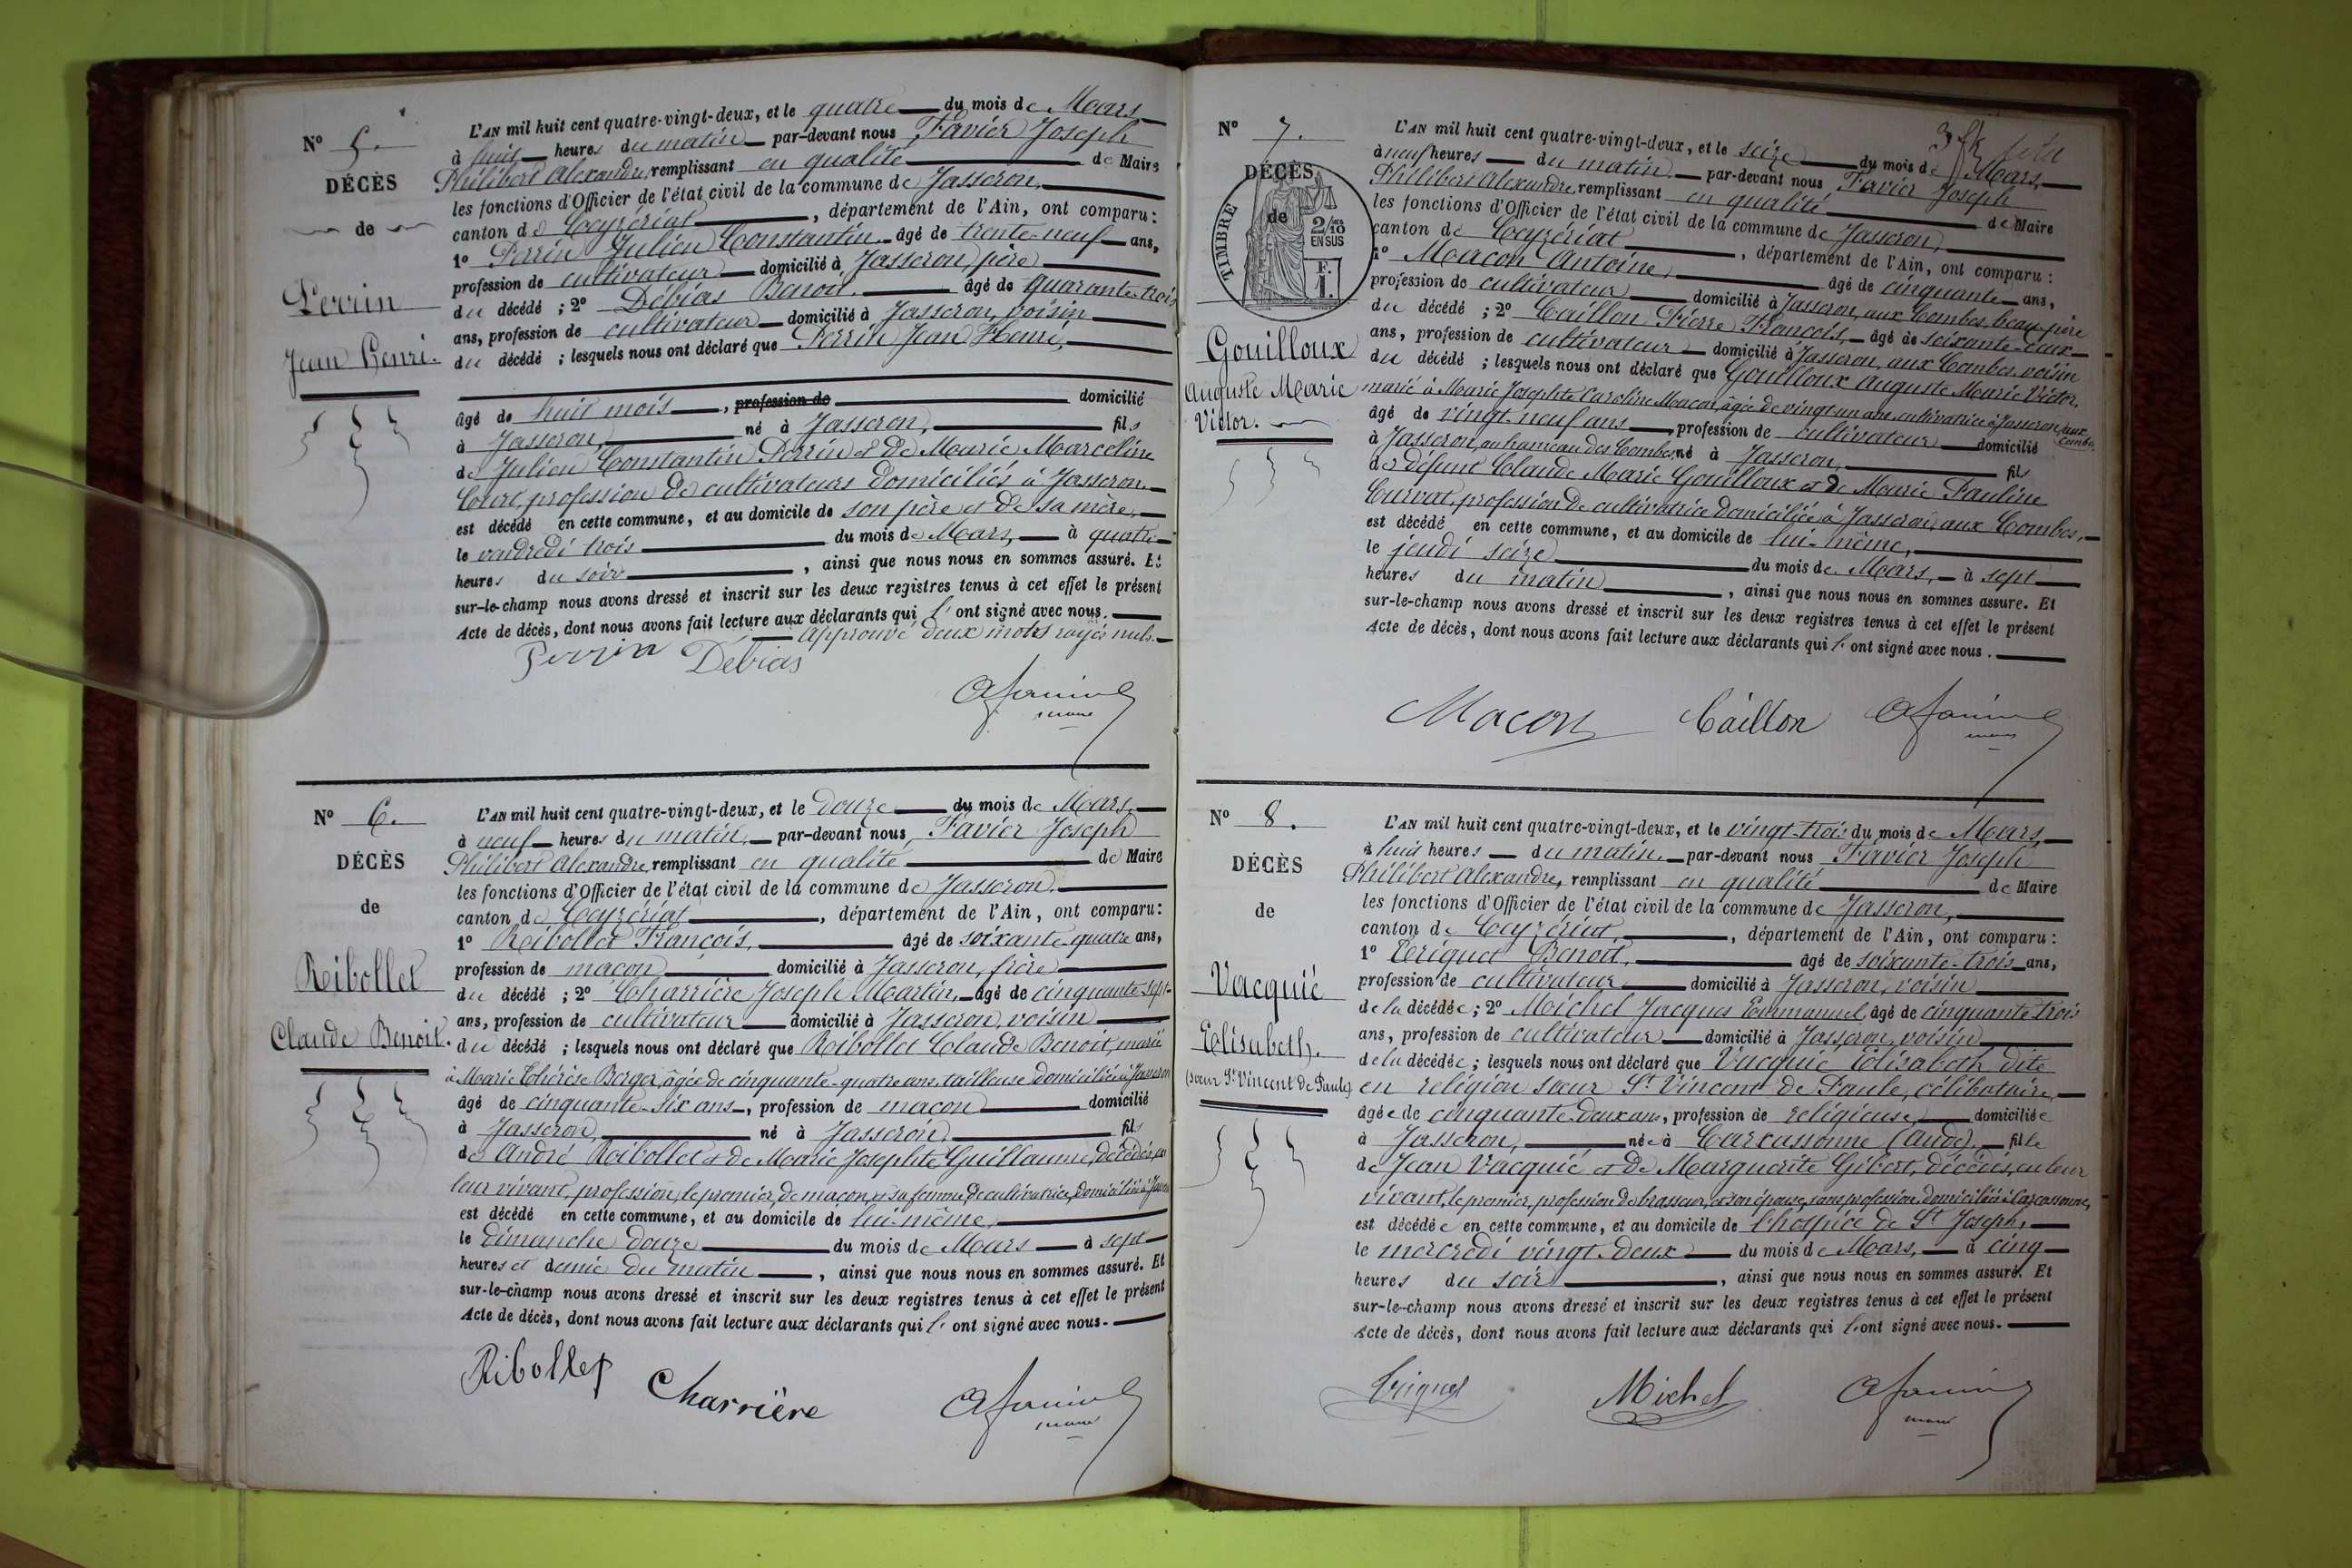 Nº 5.
DÉCÈS
de
Perrin
Jean Henri.
L'AN mil huit cent quatre-vingt-deux, et le quatre du mois de Mars
à huit heures du matin par-devant nous Favier Joseph
Philibert Alexandre, remplissant en qualité de Maire
les fonctions d'Officier de l'état civil de la commune de Jasseron,
canton de Ceyzériat, département de l'Ain, ont comparu :
1º Perrin Julien Constantin âgé de trente-neuf ans,
profession de cultivateur domicilié à Jasseron, père
du décédé ; 2º Débias Benoit, âgé de quarante-trois
ans, profession de cultivateur domicilié à Jasseron, voisin
du décédé ; lesquels nous ont déclaré que Perrin Jean Henri,
âgé de huit mois, profession de domicilié
à Jasseron, né à Jasseron, fils
de Julien Constantin Perrin et de Marie Marceline
profession de cultivateurs domiciliés à Jasseron.
est décédé en cette commune, et au domicile de son père et de sa mère,
le vendredi trois du mois de Mars, à quatre
heures du soir, ainsi que nous nous en sommes assuré. Et
sur-le-champ nous avons dressé et inscrit sur les deux registres tenus à cet effet le présent
Acte de décès, dont nous avons fait lecture aux déclarants qui l'ont signé avec nous.
Approuvé deux mots rayés nuls.
Perrin Debias
maire
Nº 6.
DÉCÈS
de
Ribollet
Claude Benoit.
L'AN mil huit cent quatre-vingt-deux, et le douze du mois de Mars,
à neuf heures du matin, par-devant nous, Favier Joseph
Philibert Alexandre, remplissant en qualité de Maire
les fonctions d'Officier de l'état civil de la commune de Jasseron.
canton de Ceyzériat, département de l'Ain, ont comparu :
1º Ribollet François, âgé de soixante-quatre ans,
profession de maçon domicilié à Jasseron, frère
du décédé ; 2º Charrière Joseph Martin, âgé de cinquante-sept
ans, profession de cultivateur domicilié à Jasseron, voisin
du décédé ; lesquels nous ont déclaré que Ribollet Claude Benoit, marié
à Marie Thérèse Berger, âgée de cinquante-quatre ans, tailleuse domiciliée à Jasseron
âgé de cinquante-six ans, profession de maçon domicilié
à Jasseron, né à Jasseron, fils
de André Ribollet et de Marie Josephte Guillaume, décédés, en
leur vivant, profession, le premier, de maçon, et sa femme, de cultivatrice, domiciliés à Jasseron
est décédé en cette commune, et au domicile de lui-même,
le dimanche douze du mois de Mars à sept
heures et demie du matin, ainsi que nous nous en sommes assuré. Et
sur-le-champ nous avons dressé et inscrit sur les deux registres tenus à cet effet le présent
Acte de décès, dont nous avons fait lecture aux déclarants qui l'ont signé avec nous.
Ribollet Charrière
maire
Nº 7.
DÉCÈS
de
TIMBRE
2/10
EN SUS
F.
1.
Gouilloux
Auguste Marie
Victor.
L'AN mil huit cent quatre-vingt-deux, et le seize du mois de Mars,
à neuf heures du matin, par-devant nous Favier Joseph
Philibert Alexandre, remplissant en qualité de Maire
les fonctions d'Officier de l'état civil de la commune de Jasseron,
canton de Ceyzériat, département de l'Ain, ont comparu :
1º Macon Antoine, âgé de cinquante ans,
profession de cultivateur domicilié à Jasseron, aux Combes, beau-père
du décédé ; 2º Caillon Pierre François, âgé de soixante-deux
ans, profession de cultivateur domicilié à Jasseron, aux Combes, voisin
du décédé ; lesquels nous ont déclaré que Gouilloux Auguste Marie Victor,
marié à Marie Josephte Caroline Macon, âgée de vingt un ans, cultivatrice à Jasseron, aux Combes
âgé de vingt-neuf ans, profession de cultivateur domicilié
à Jasseron, au hameau des Combes, né à Jasseron, fils
de défunt Claude Marie Gouilloux et de Marie Pauline
Curvat, profession de cultivatrice domiciliée à Jasseron, aux Combes,
est décédé en cette commune, et au domicile de lui-même,
le jeudi seize du mois de Mars, à sept
heures du matin, ainsi que nous nous en sommes assuré. Et
sur-le-champ nous avons dressé et inscrit sur les deux registres tenus à cet effet le présent
Acte de décès, dont nous avons fait lecture aux déclarants qui l'ont signé avec nous.
Macon Caillon
maire
Nº 8.
DÉCÈS
de
Vacquié
Elisabeth.
(sœur St Vincent de Paule)
L'AN mil huit cent quatre-vingt-deux, et le vingt-trois du mois de Mars,
à huit heures du matin, par-devant nous Favier Joseph
Philibert Alexandre, remplissant en qualité de Maire
les fonctions d'Officier de l'état civil de la commune de Jasseron,
canton de Ceyzériat, département de l'Ain, ont comparu :
1º Criquet Benoit, âgé de soixante-trois ans,
profession de cultivateur domicilié à Jasseron, voisin
de la décédée ; 2º Michel Jacques Emmanuel, âgé de cinquante-trois
ans, profession de cultivateur domicilié à Jasseron, voisin
de la décédée ; lesquels nous ont déclaré que Vacquié Elisabeth dite
en religion sœur St Vincent de Paule, célibataire,
âgée de cinquante-deux ans, profession de religieuse, domiciliée
à Jasseron, née à Carcassonne (Aude), fille
de Jean Vacquié et de Marguerite Gibert, décédés, en leur
vivant, le premier, profession de brasseur, et son épouse, sans profession, domiciliés à Carcassonne,
est décédée en cette commune, et au domicile de l'hospice de St Joseph,
le mercredi vingt-deux du mois de Mars, à cinq
heures du soir, ainsi que nous nous en sommes assuré. Et
sur-le-champ nous avons dressé et inscrit sur les deux registres tenus à cet effet le présent
Acte de décès, dont nous avons fait lecture aux déclarants qui l'ont signé avec nous.
Michel
maire